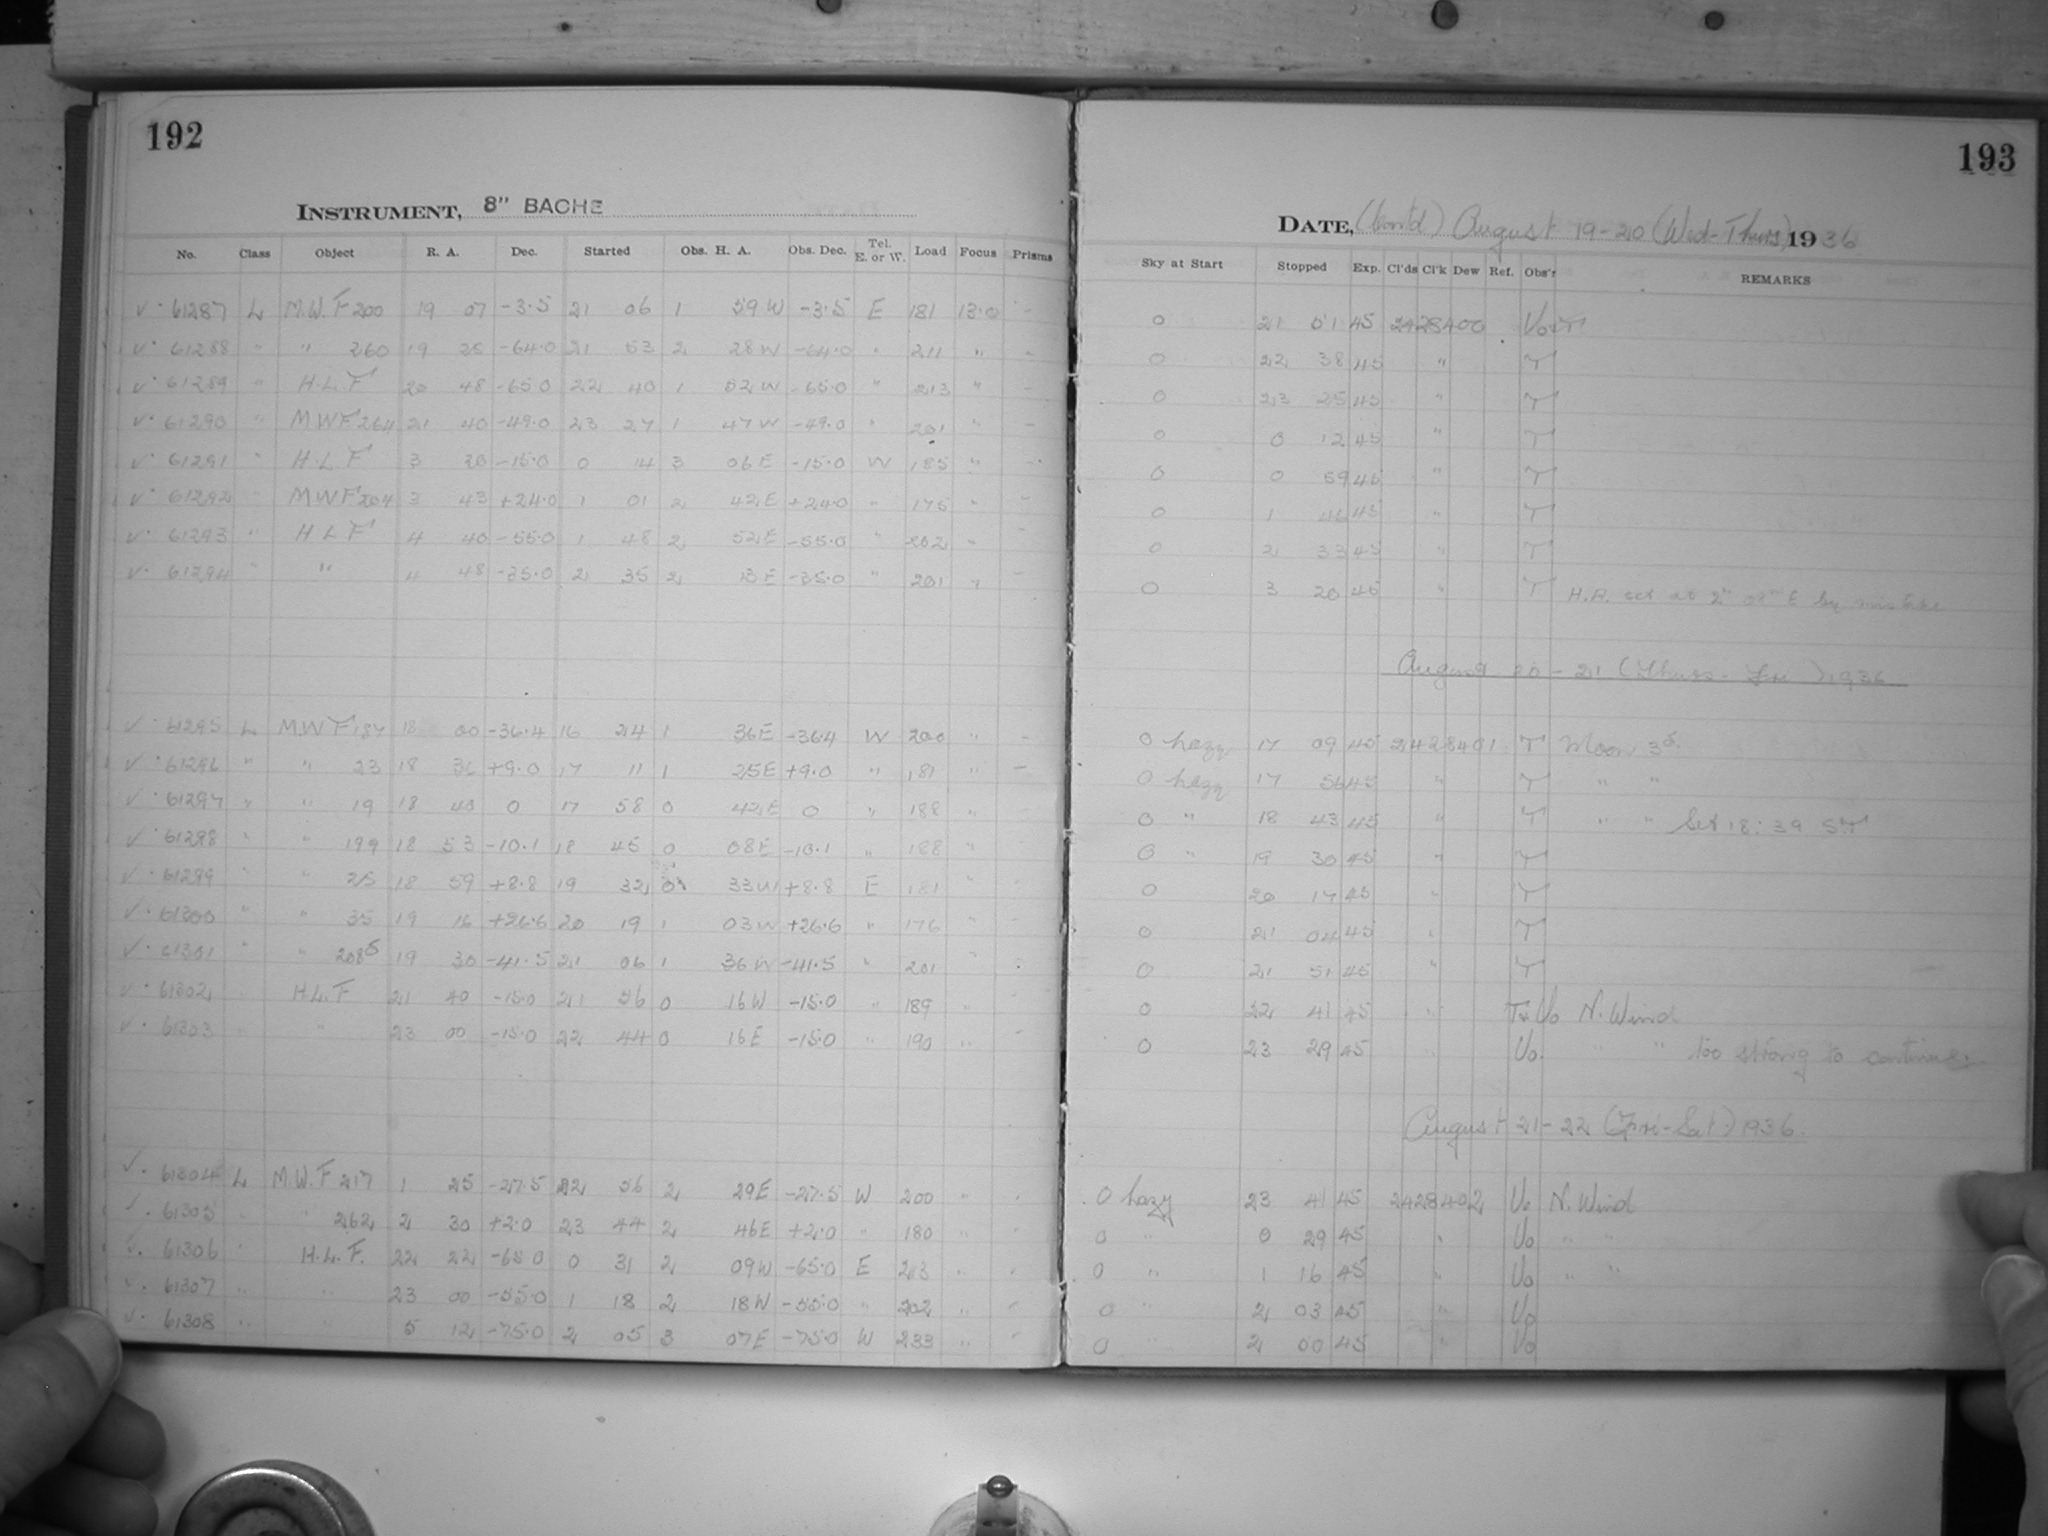 192
INSTRUMENT, 8" BACHE
No. Class Object R. A. Dec. Started Obs. H. A. Obs. Dec. Tel. E. or W. Load Focus Prisms
✓· 61287 L M.W.F 200 19 07 -3.5 21 06 1 59 W -3.5 E 181 13.0 -
✓· 61288 " " 260 19 25 -64.0 21 53 2 28 W -64.0 " 211 " -
✓· 61289 " H.L.F 20 48 -65.0 22 40 1 52 W -65.0 " 213 " -
✓· 61290 " MWF 264 21 40 -49.0 23 27 1 47 W -49.0 " 201 " -
✓· 61291 " H.L.F 3 20 -15.0 0 14 3 06 E -15.0 W 185 " -
✓· 61292 " MWF 204 3 43 +24.0 1 01 2 42 E +24.0 " 175 " -
✓· 61293 " H L F 4 40 -55.0 1 48 2 52 E -55.0 " 202 " -
✓· 61294 " " 4 48 -35.0 2 35 2 13 E -35.0 " 201 " -
✓· 61295 L M.W F 187 18 00 -36.4 16 24 1 36 E -36.4 W 200 " -
✓· 61296 " " 23 18 36 +9.0 17 11 1 25 E +9.0 " 181 " -
✓· 61297 " " 19 18 40 0 17 58 0 42 E 0 " 188 "
✓· 61298 " " 199 18 53 -10.1 18 45 0 08 E -10.1 " 188 "
✓· 61299 " " 25 18 59 +8.8 19 32 0 33 W +8.8 E 181 "
✓· 61300 " " 35 19 16 +26.6 20 19 1 03 W +26.6 " 176
✓· 61301 " " 208 19 30 -41.5 21 06 1 36 W -41.5 " 201
✓· 61302 H.L.F 21 40 -15.0 21 56 0 16 W -15.0 " 189
✓· 61303 " 23 00 -15.0 22 44 0 16 E -15.0 " 190 "
✓· 61304 L M.W.F 217 1 25 -27.5 22 56 2 29 E -27.5 W 200 "
✓· 61305 " 262 2 30 +2.0 23 44 2 46 E +2.0 " 180 "
✓· 61306 " H.L.F. 22 22 -65.0 0 31 2 09 W -65.0 E 213 "
✓· 61307 " " 23 00 -55.0 1 18 2 18 W -55.0 " 202 "
✓· 61308 " " 5 12 -75.0 2 05 3 07 E -75.0 W 233 "
193
DATE, (Cont'd) August 19-20 (Wed-Thurs) 1936
Sky at Start Stopped Exp. Cl'ds Cl'k Dew Ref. Obs'r REMARKS
0 21 51 45 2428400 Vo T
0 22 38 45 " T
0 23 25 45 " T
0 0 12 45 " T
0 0 59 45 " T
0 1 46 45 " T
0 2 33 45 " T
0 3 20 45 " T H.A. set at 2h E by mistake
August 20-21 (Thurs-Fri) 1936
0 hazy 17 09 45 2428401 T Moon 3d.
0 hazy 17 56 45 " T " "
0 " 18 43 45 " T " " Set 18:39 ST
0 " 19 30 45 " T
0 20 17 45 " T
0 21 04 45 " T
0 21 51 45 " T
0 22 41 45 " T. Vo N. Wind
0 23 29 45 " Vo. " " too strong to continue.
August 21-22 (Fri-Sat) 1936.
0 hazy 23 41 45 2428402 Vo N. Wind
0 " 0 29 45 " Vo " "
0 " 1 16 45 " Vo " "
0 " 2 03 45 " Vo
0 2 00 45 " Vo